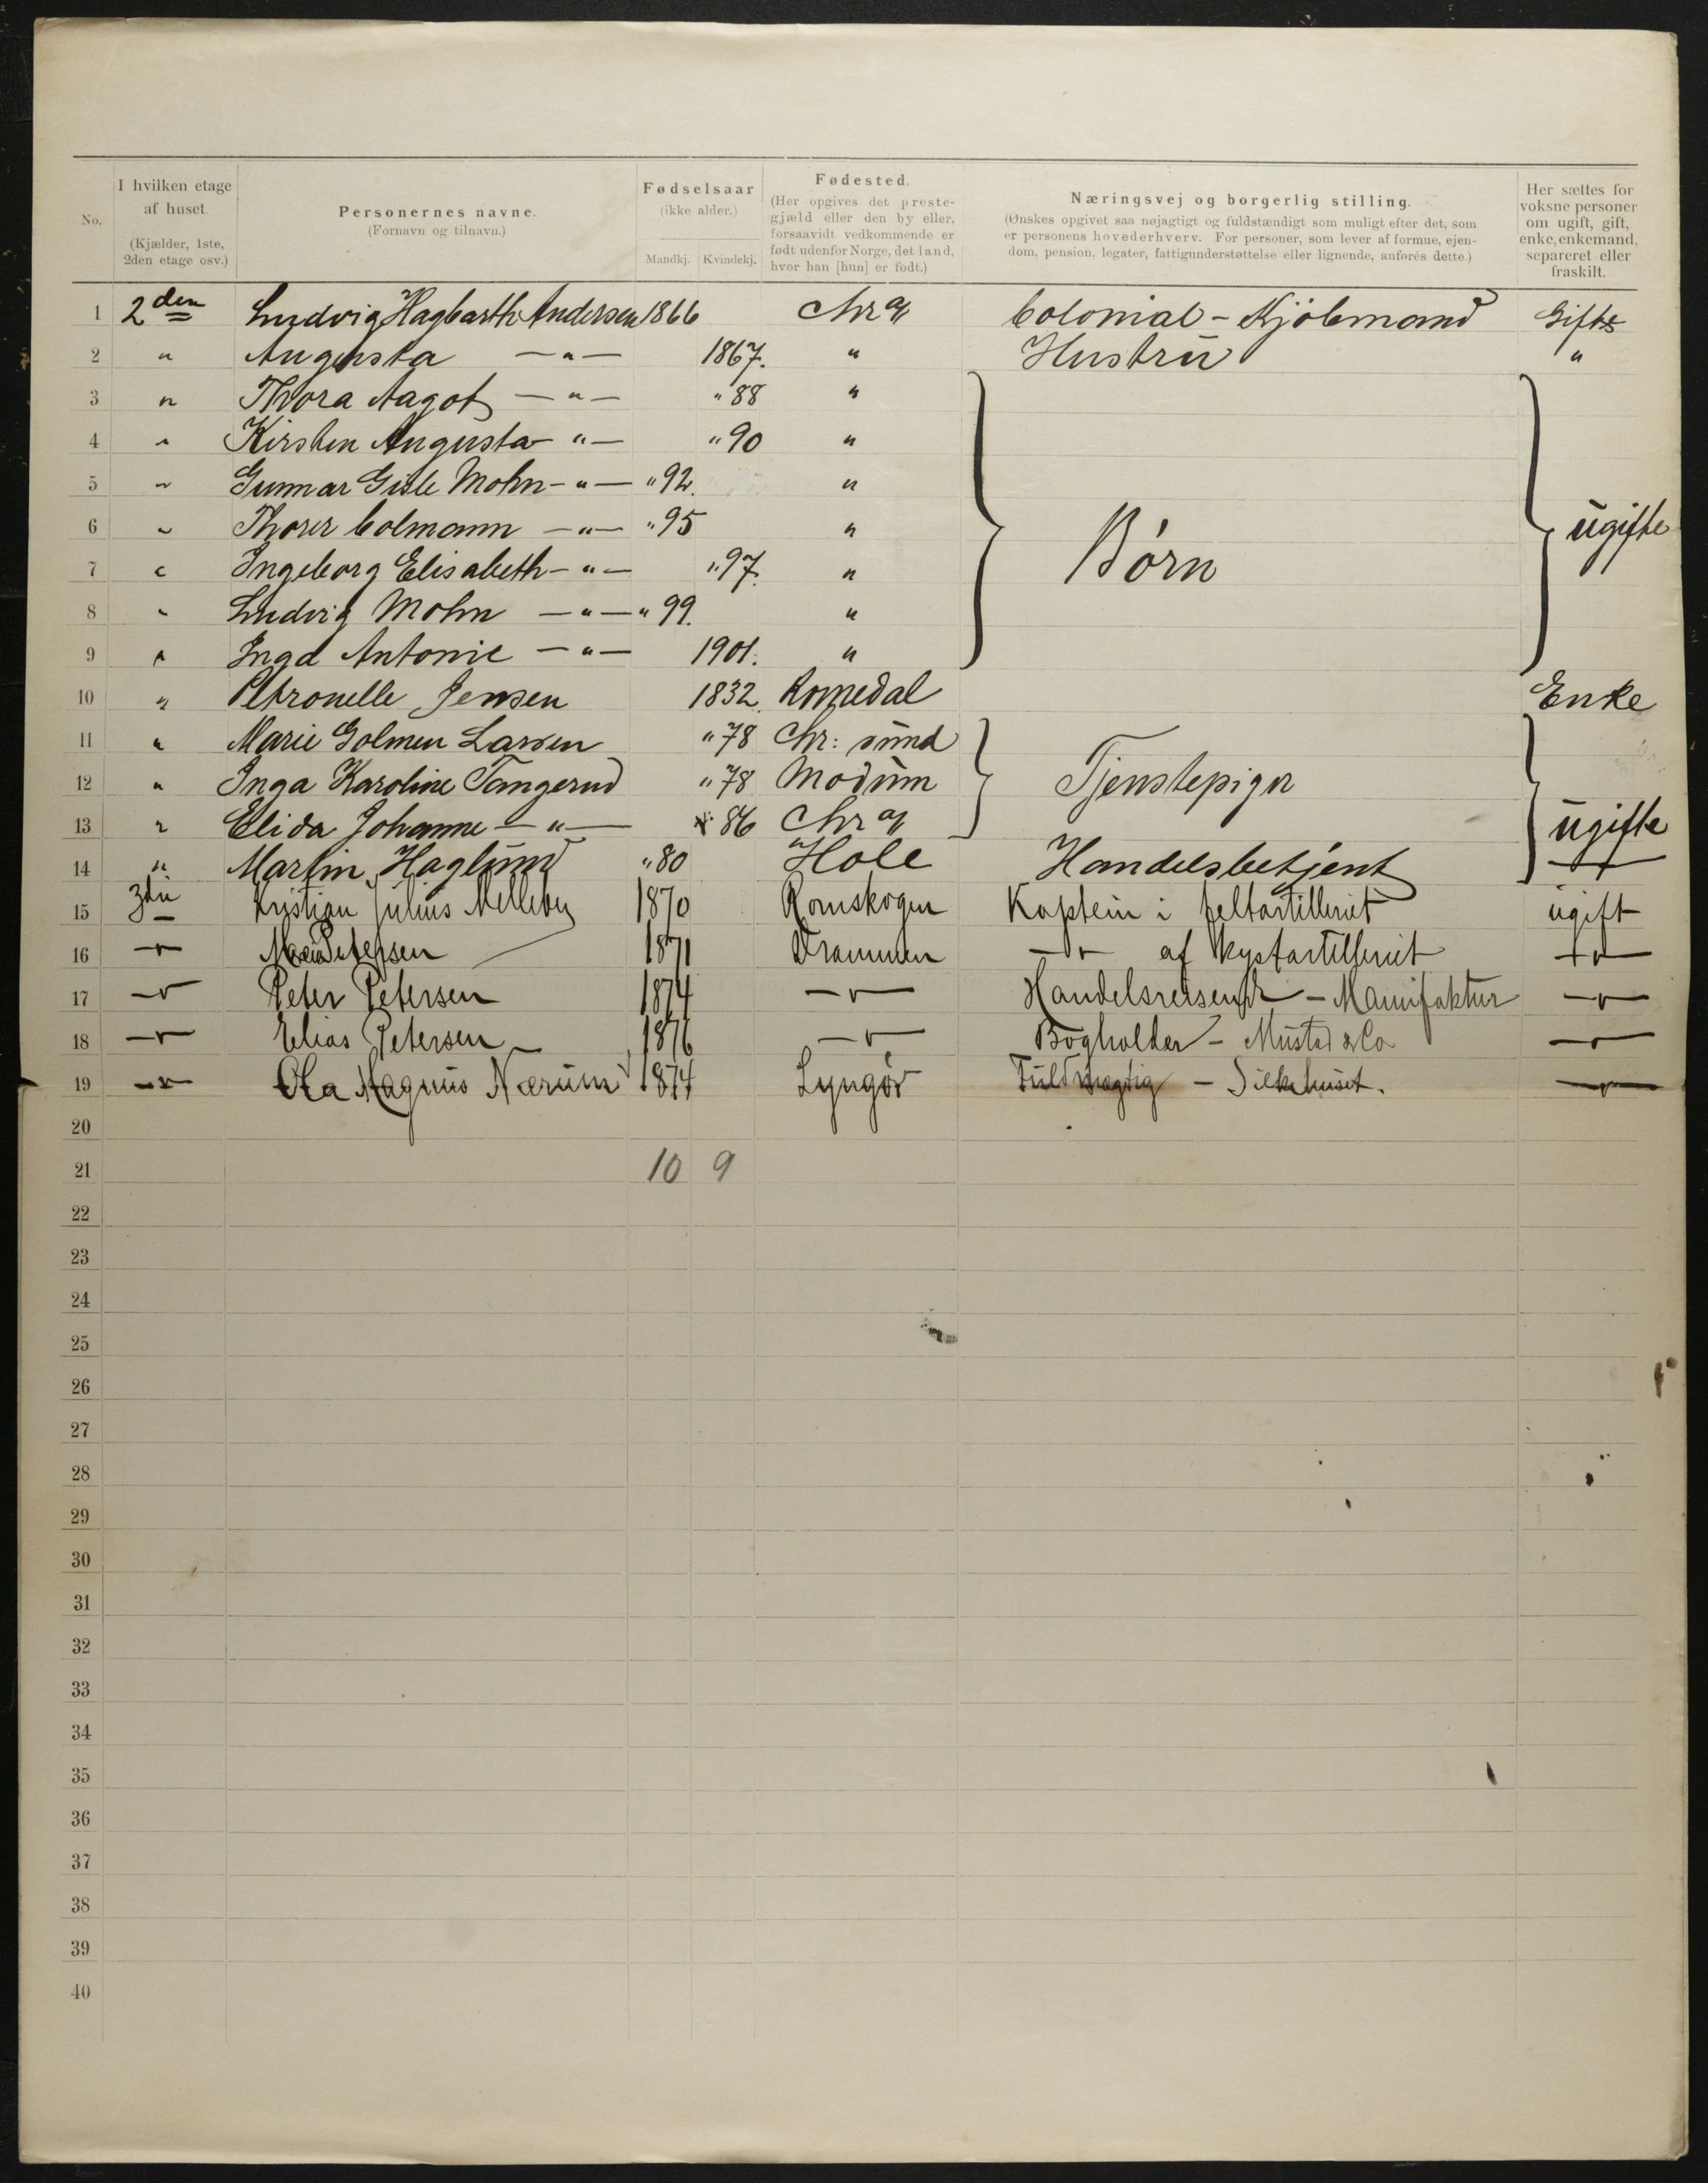 No.
I hvilken etage af huset. (Kjælder, 1ste, 2den etage osv.)
Personernes navne. (Fornavn og tilnavn.)
Fødselsaar (ikke alder.) Mandkj. Kvindekj.
Fødested. (Her opgives det prestegjæld eller den by eller, forsaavidt vedkommende er født udenfor Norge, det land, hvor han [hun] er født.)
Næringsvej og borgerlig stilling. (Ønskes opgivet saa nøjagtigt og fuldstændigt som muligt efter det, som er personens hovederhverv. For personer, som lever af formue, ejendom, pension, legater, fattigunderstøttelse eller lignende, anføres dette.)
Her sættes for voksne personer om ugift, gift, enke, enkemand, separeret eller fraskilt.
1 2den Ludvig Hagbarth Andersen 1866 Chra Colonial - Kjöbmand Gift
2 " Augusta — " — 1867. " Hustru "
3 " Thora Aagot — " — " 88 "
4 " Kirsten Augusta — " — " 90 "
5 " Gunnar Gisle Mohn — " — " 92. "
6 " Thorer Colmann — " — " 95 " Børn ugifte
7 " Ingeborg Elisabeth — " — " 97. "
8 " Ludvig Mohn — " — " 99. "
9 " Inga Antonie — " — 1901. "
10 " Petronelle Jensen 1832. Romedal Enke
11 " Marie Golmen Larsen " 78 Chr: sund
12 " Inga Karoline Tangerud " 78 Modum Tjenstepiger
13 " Elida Johanne — " — 86 Chra ugifte
14 " Martin Haglund " 80 Hole Handelsbetjent
15 3die Kristian Julius Melleby 1870 Romskogen Kaptein i feltartilleriet ugift
16 — " — Petersen 1871 Drammen — " — af kystartilleriet — " —
17 — " — Peter Petersen 1874 — " — Handelsreisende - Manufaktur — " —
18 — " — Elias Petersen 1876 — " — Bogholder - Mustad & Co — " —
19 — " — Ola Magnus Nærum 1874 Lyngør Fuldmægtig - Silkehuset. — " —
20
21 10 9
22
23
24
25
26
27
28
29
30
31
32
33
34
35
36
37
38
39
40